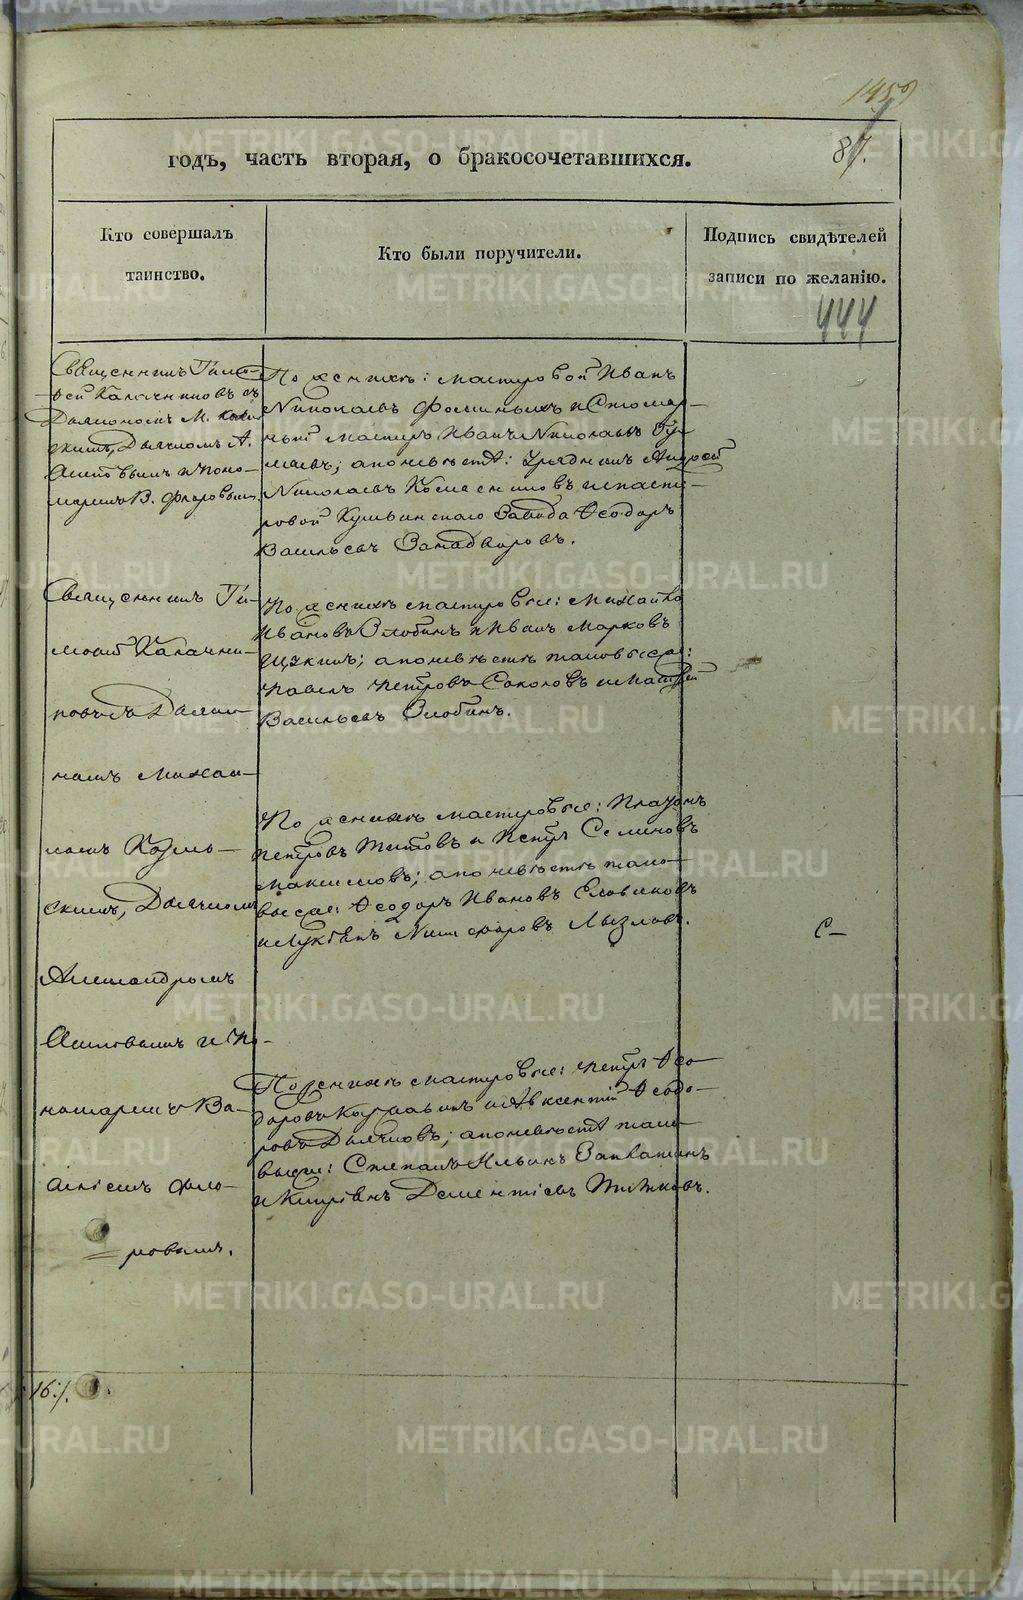 1459
87.
годъ, часть вторая, о бракосочетавшихся.
Кто совершалъ
таинство.
Кто были поручители.
Подпись свидѣтелей
записи по желанію.
444
Священникъ Тимо-
ѳей Калачниковъ съ
Дьякономъ М.
скимъ, Дьячкомъ А.
и Поно-
маремъ В. Флоровымъ.
По женихѣ: мастеровой Иванъ
Николаевъ Фоминыхъ и Столяр-
ный мастеръ Иванъ Николаевъ
аповевѣстѣ: Урядникъ Андрей
Николаевъ и масте-
ровой Кушвинскаго Завода Ѳеодоръ
Васильевъ Западворовъ.
Священникъ Ти-
моѳей Калачни-
ковъ съ Дьяко-
номъ Михаи-
ломъ
скимъ, Дьячкомъ
Александромъ
и По-
номаремъ Ва-
силіемъ Фло-
ровымъ.
По женихѣ мастеровые: Михайло
Ивановъ Злобинъ и Иванъ Марковъ
аповевѣстѣ таковыеже:
Павелъ Петровъ Соколовъ и Матвей
Васильевъ Злобинъ.
По женихѣ мастеровые: Платонъ
Петровъ Титовъ и Петръ Семеновъ
Максимовъ; аповевѣстѣ тако-
выеже: Ѳеодоръ Ивановъ Еловиковъ
и Лукіянъ Никифоровъ Лызловъ.
С-
По женихѣ мастеровые: Петръ Ѳео-
доровъ и Авксентій Ѳеодо-
ровъ Дьячковъ; аповевѣстѣ тако-
выеже: Степанъ Ильинъ
и Кипріянъ Дементіевъ Титковъ.
16:/.
METRIKI.GASO-URAL.RU